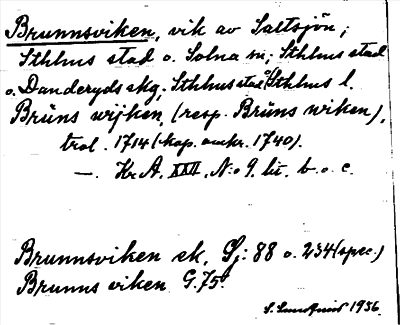 Brunnsviken, vik av Saltsjön;
Sthlms stad o. Solna sn; Sthlms stad
o. Danderyds skg; Sthlms stad o. Sthlms l.
Brüns wijken, (resp. Brüns wiken),
trol. 1714 (kop. omkr. 1740).
—. Kr A. XXII, N:o 9. lit. b. o. c.
Brunnsviken ek, Sj: 88 o. 234 (spec.)
Brunns viken G. 75.
1936